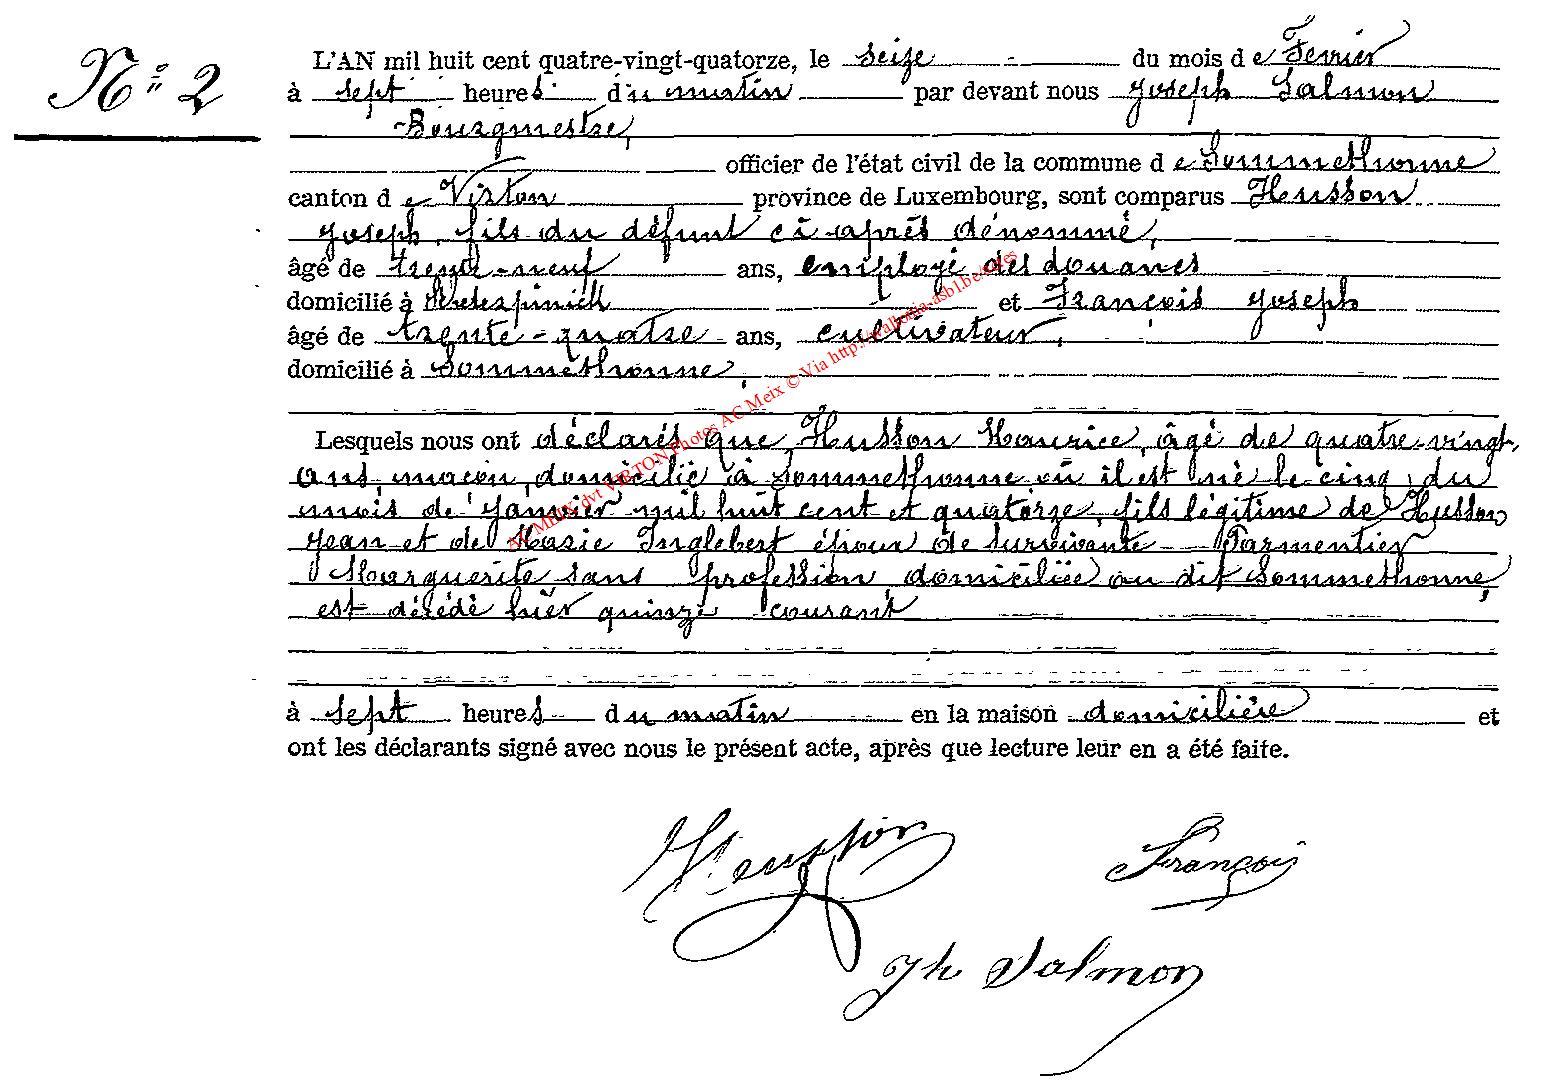 N° 2
L'AN mil huit cent quatre-vingt-quatorze, le seize du mois de Fevrier
à sept heures du matin par devant nous Joseph Salmon
Bourgmestre,
officier de l'état civil de la commune de Sommethonne
canton de Virton province de Luxembourg, sont comparus Husson
Joseph, fils du défunt ci-après dénommé,
âgé de trente-neuf ans, employé des douanes
domicilié à et François Joseph
âgé de trente-quatre ans, cultivateur,
domicilié à Sommethonne,
Lesquels nous ont déclarés que Husson Maurice, âgé de quatre-vingt-
ans, maçon, domicilié à Sommethonne où il est né le cinq du
mois de Janvier mil huit cent et quatorze, fils légitime de Husson
Jean et de Marie Inglebert époux de survivante Parmentier
Marguerite sans profession domiciliée au dit Sommethonne,
est décédé hier quinze courant
à sept heures du matin en la maison domicilière et
ont les déclarants signé avec nous le présent acte, après que lecture leur en a été faite.
Husson François
Jh Salmon
AC MEIX dvt VIRTON Photos AC Meix © Via http://wallonia-asbl.be/sites